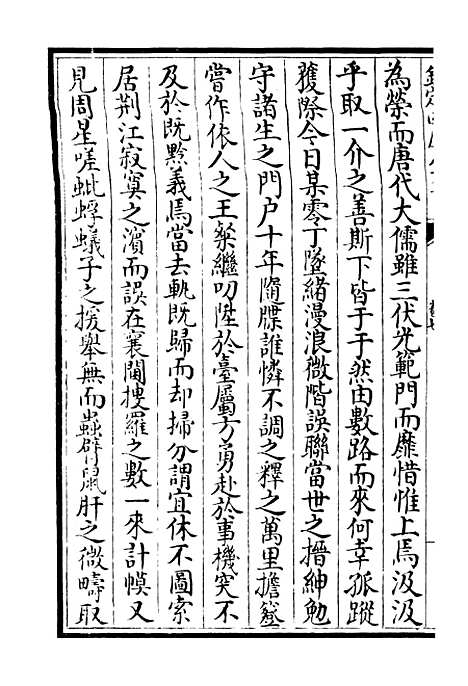 為榮而唐代大儒雖三伏光範門而靡惜惟上焉汲汲
乎取一介之善斯下皆于于然由數路而來何幸孤蹤
獲際今日某零丁墜緒漫浪微階誤聯當世之搢紳勉
守諸生之門户十年隨牒誰憐不調之釋之萬里擔簦
嘗作依人之王粲繼叨陞於臺屬方勇赴於事機突不
及於既黔義焉當去軌既歸而却掃分謂宜休不圖索
居荆江寂寞之濵而誤在襄閫搜羅之數一來計幙又
見周星嗟蚍蜉蟻子之援舉無而蟲臂鼠肝之微疇取